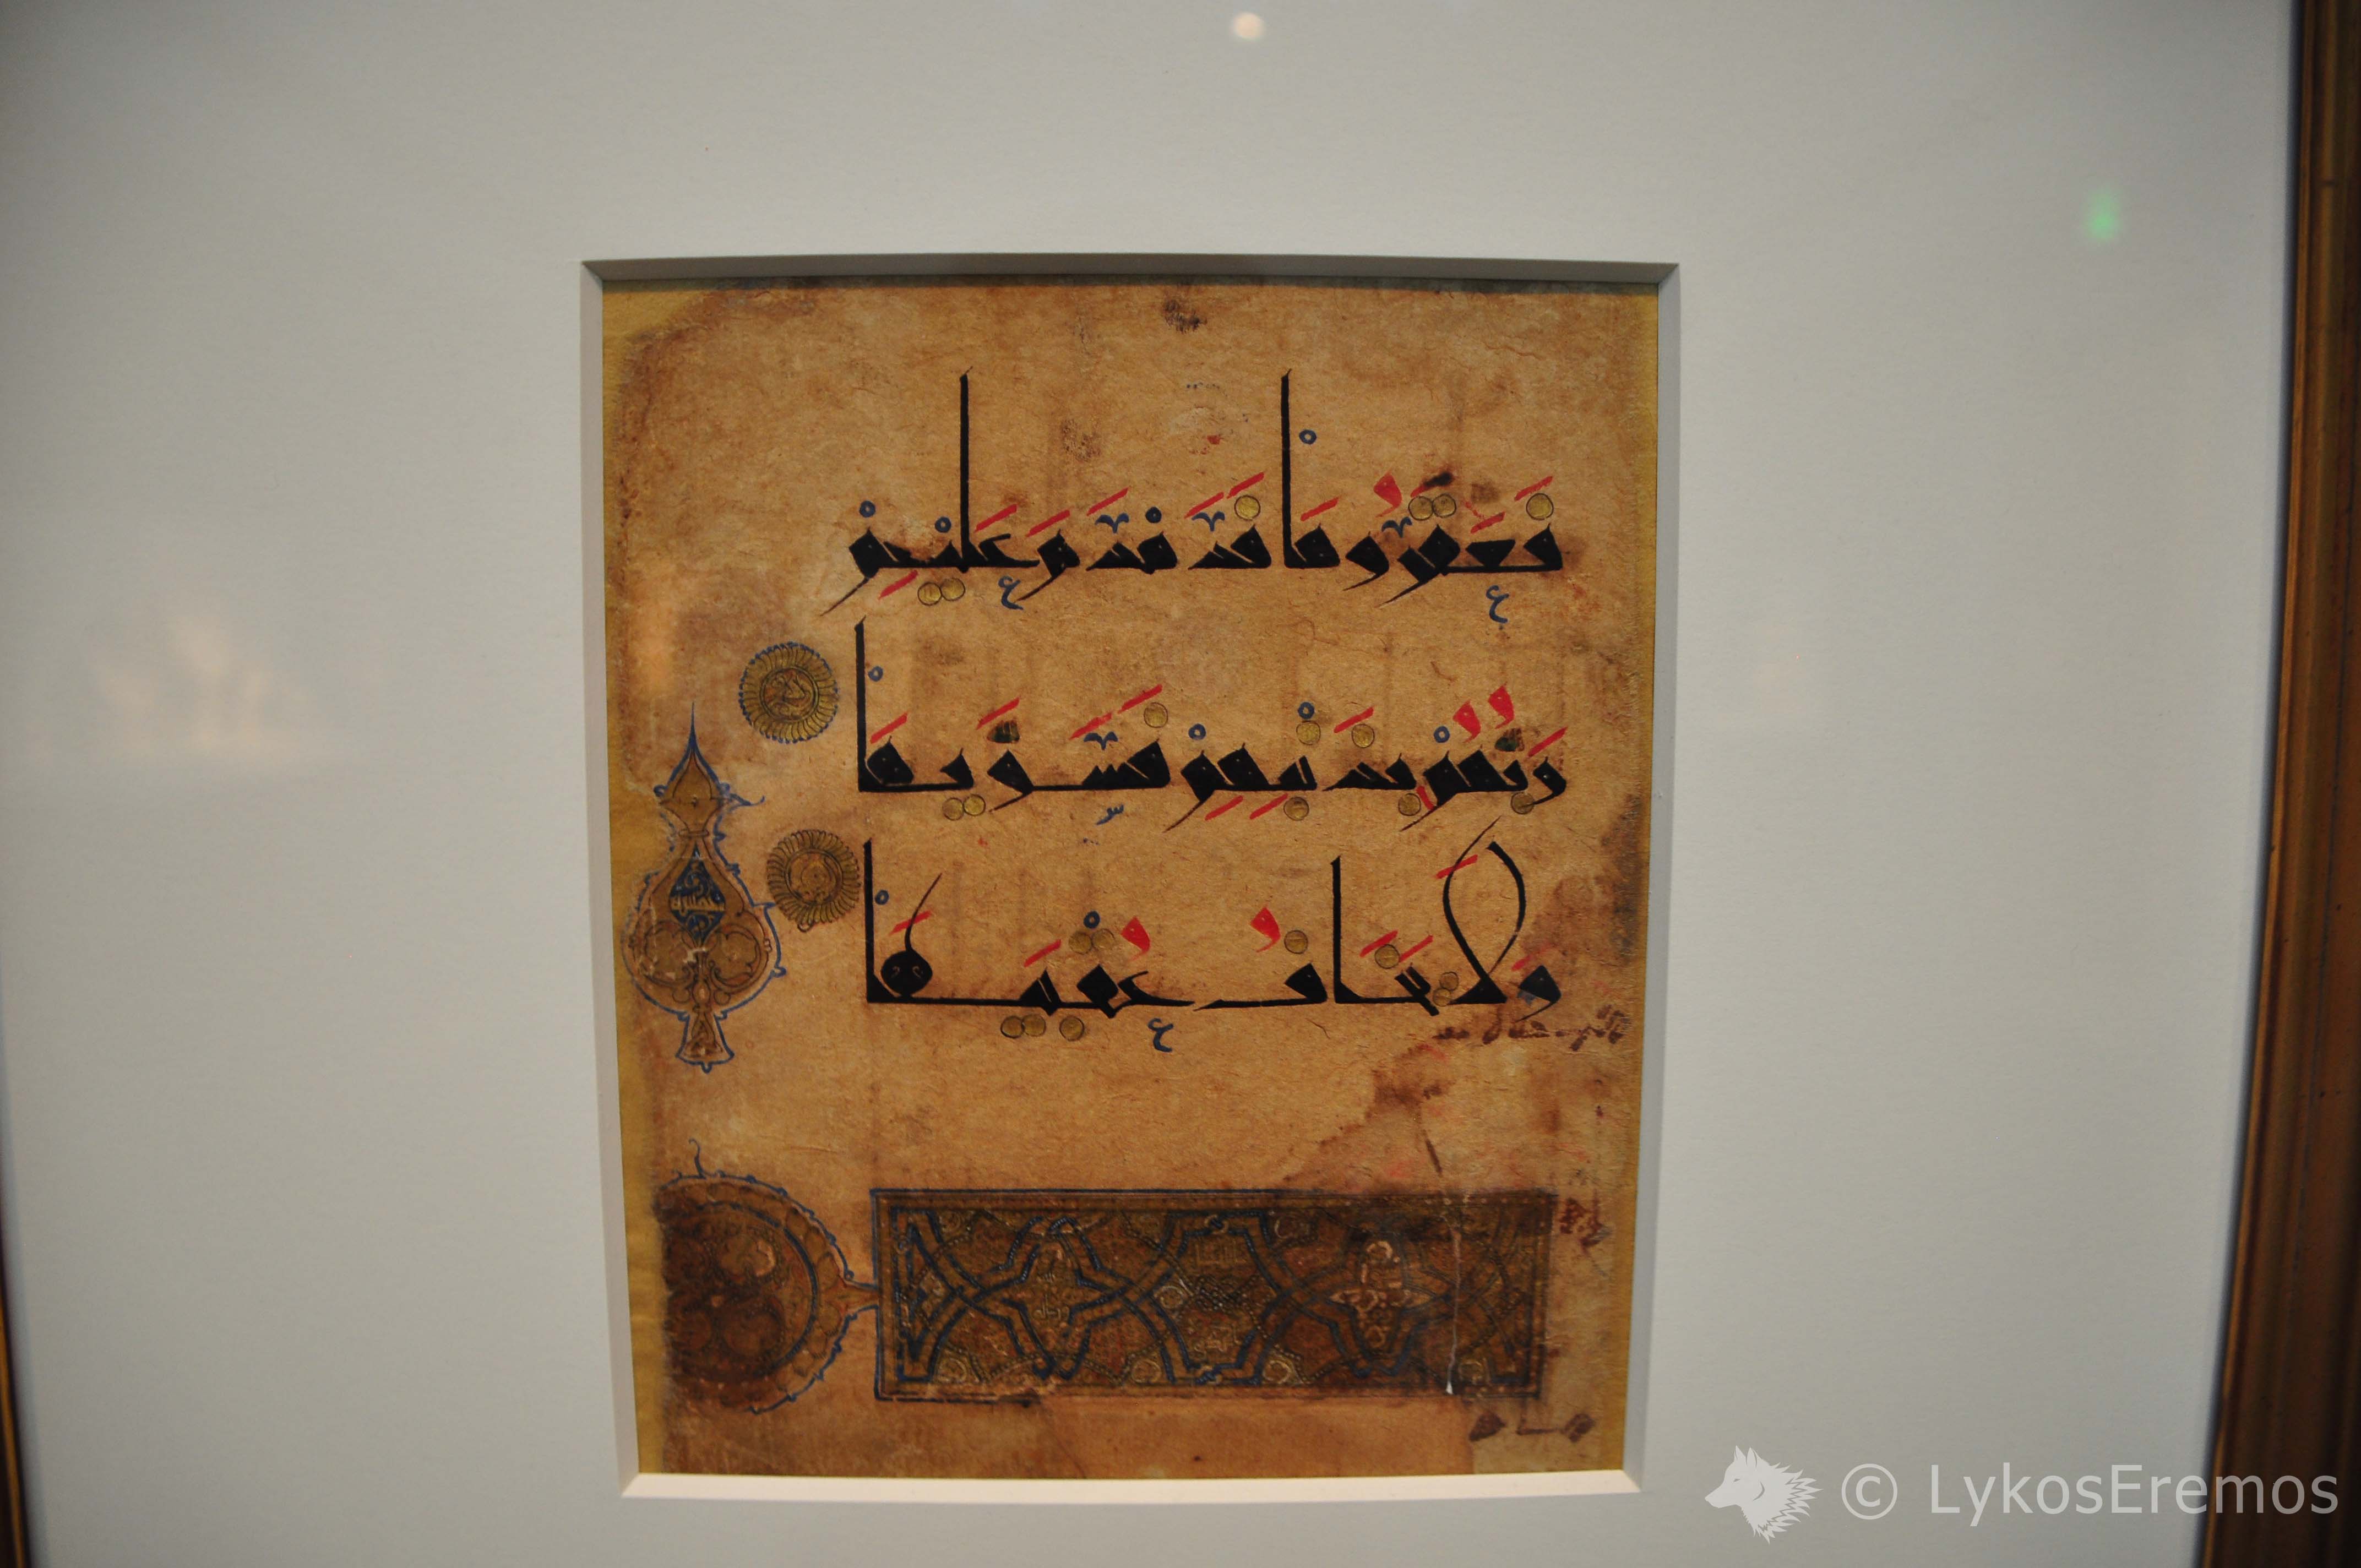 فَعَقَرُوهَا فَدَمْدَمَ عَلَيْهِمْ
رَبُّهُمْ بِذَنْبِهِمْ فَسَوَّيهَا
وَلَا يَخَافُ عُقْبَيهَا
© LykosEremos